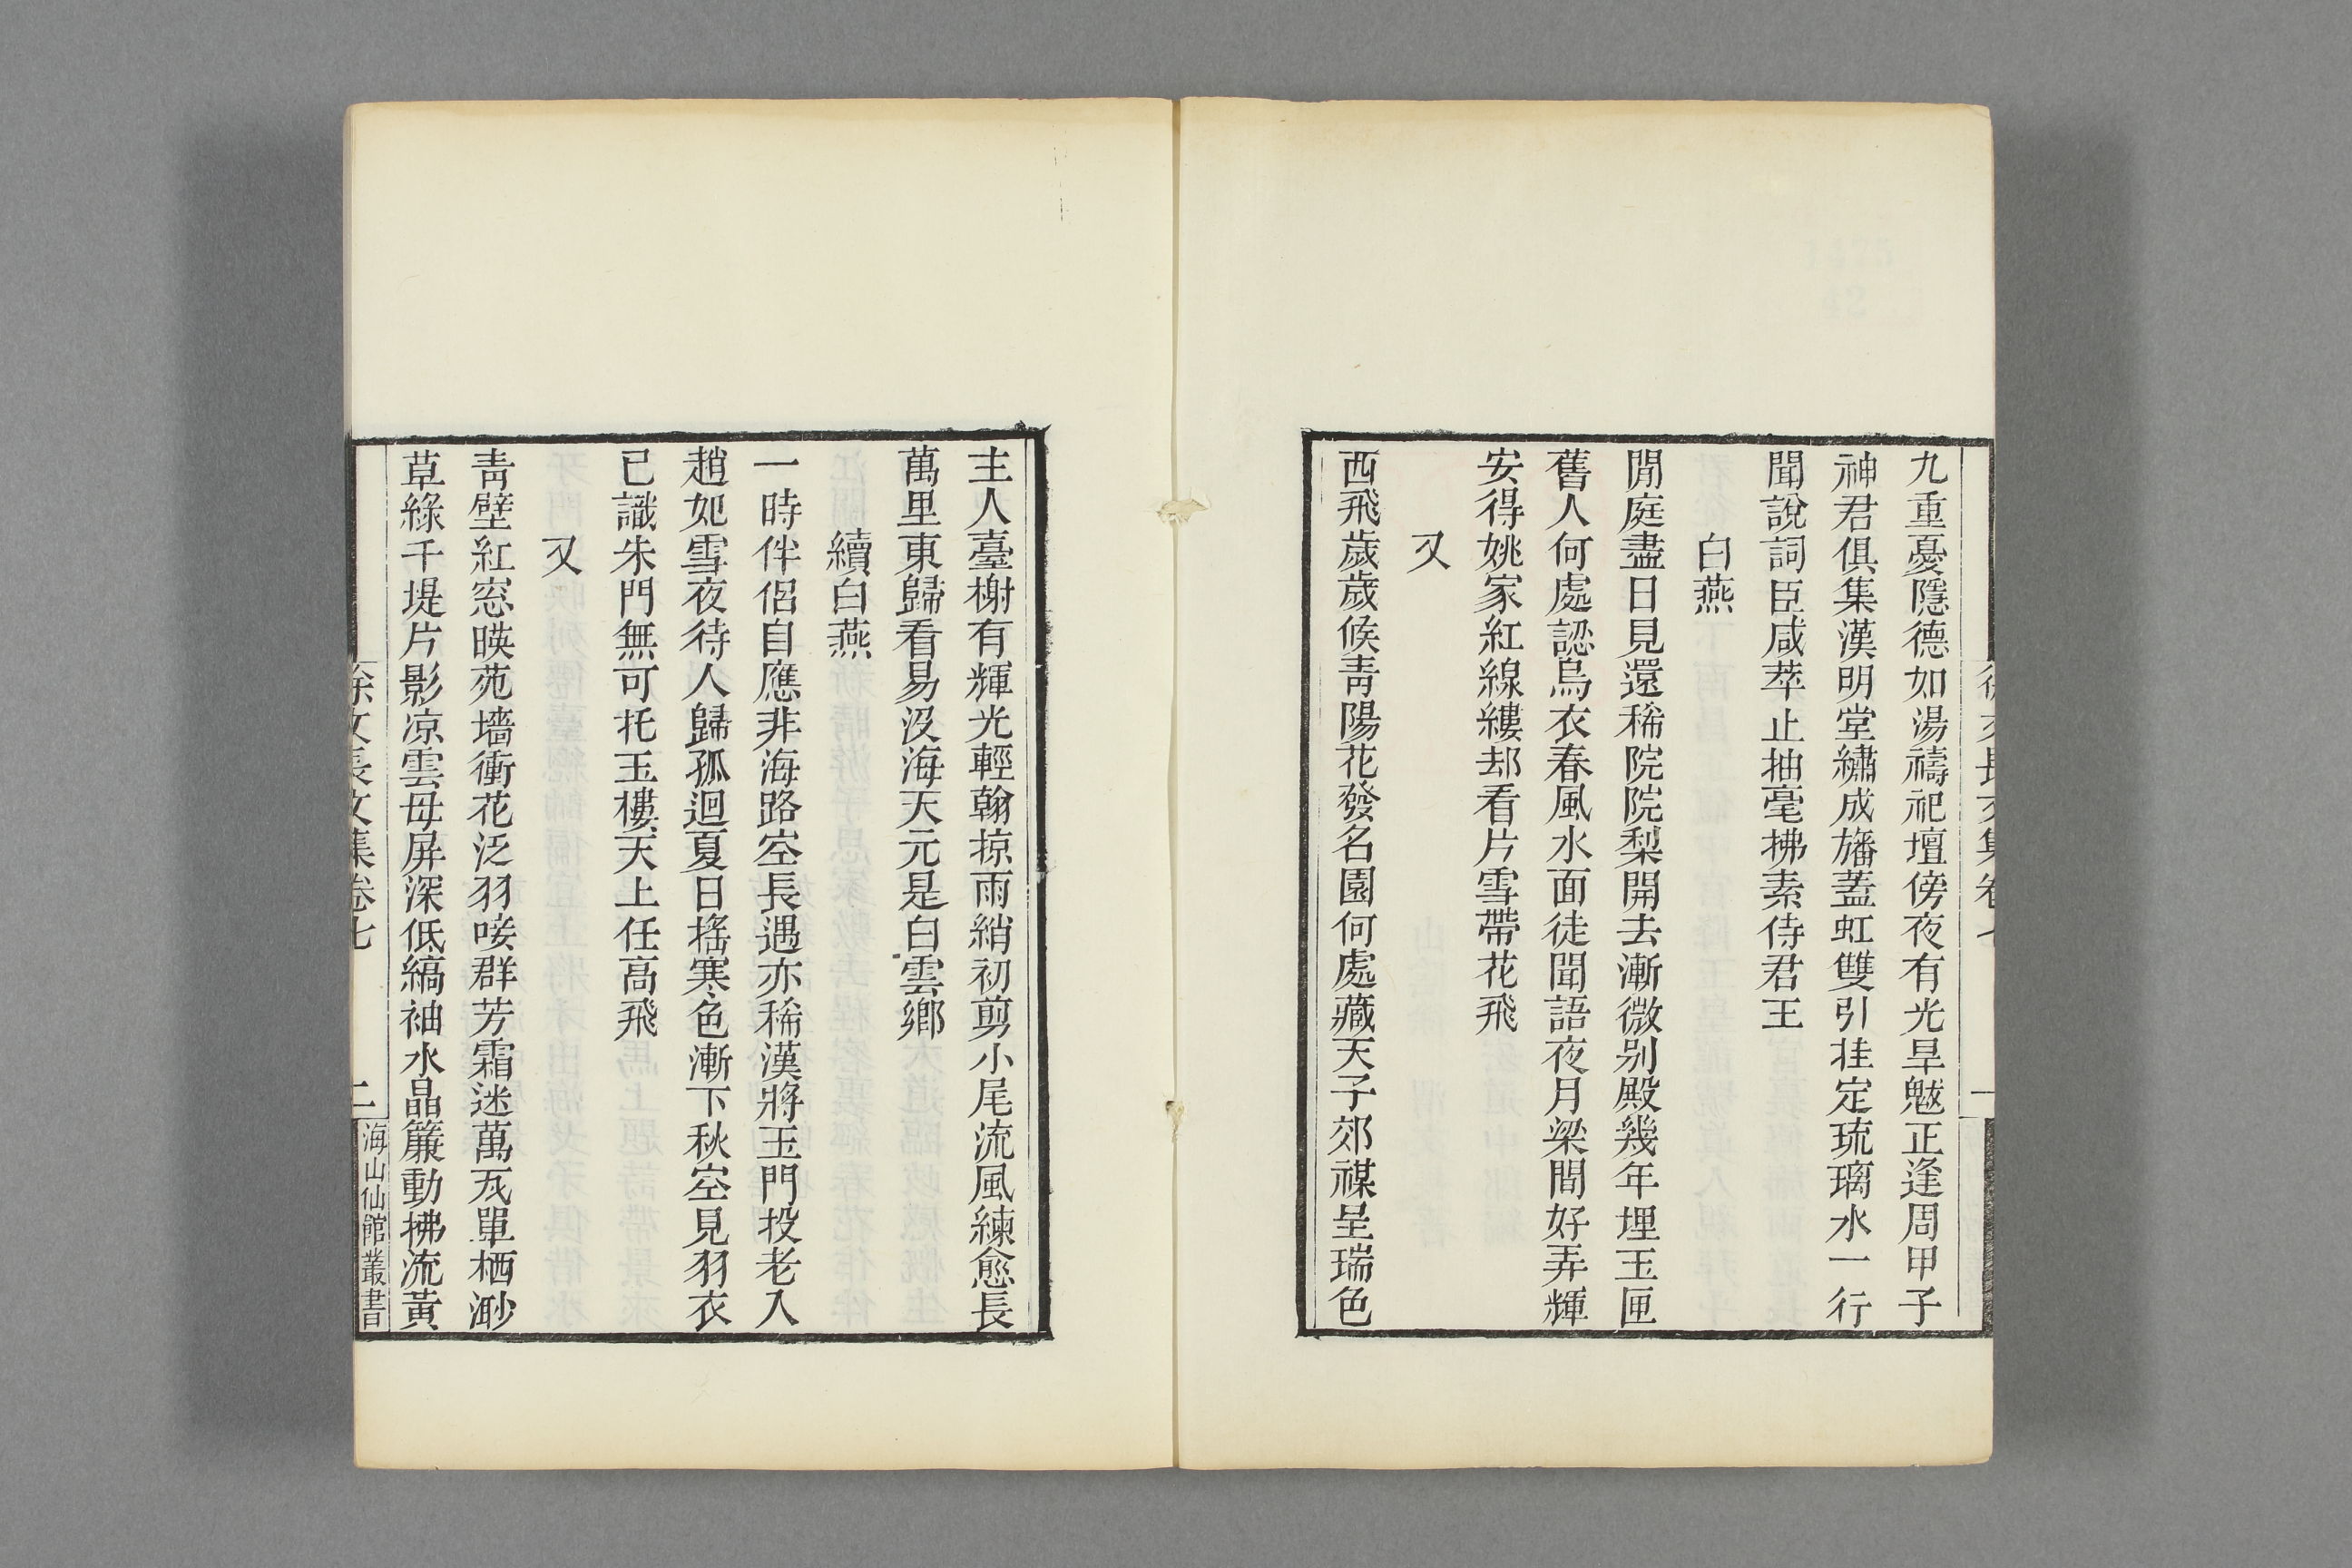 九重憂隱德如湯禱祀壇傍夜有光旱魃正逢周甲子
神君俱集漢明堂繡成旛蓋虹雙引挂定琉璃水一行
聞說詞臣咸萃止抽毫拂素侍君王
白燕
閒庭盡日見還稀院院梨開去漸微别殿幾年埋玉匣
舊人何處認烏衣春風水面徒聞語夜月梁間好弄輝
安得姚家紅線縷却看片雪帶花飛
又
西飛歲歲候靑陽花發名園何處藏天子郊禖呈瑞色
主人臺榭有輝光輕翰掠雨綃初剪小尾流風練愈長
萬里東歸看易沒海天元是白雲鄉
續白燕
一時伴侶自應非海路空長遇亦稀漢將玉門投老入
趙妃雪夜待人歸孤迴夏日搖寒色漸下秋空見羽衣
已識朱門無可托玉樓天上任高飛
又
靑壁紅窓暎苑墻衝花泛羽唼群芳霜迷萬瓦單栖渺
草綠千堤片影凉雲母屏深低縞袖水晶簾動拂流黃
徐文長文集卷七
二
海山仙館叢書